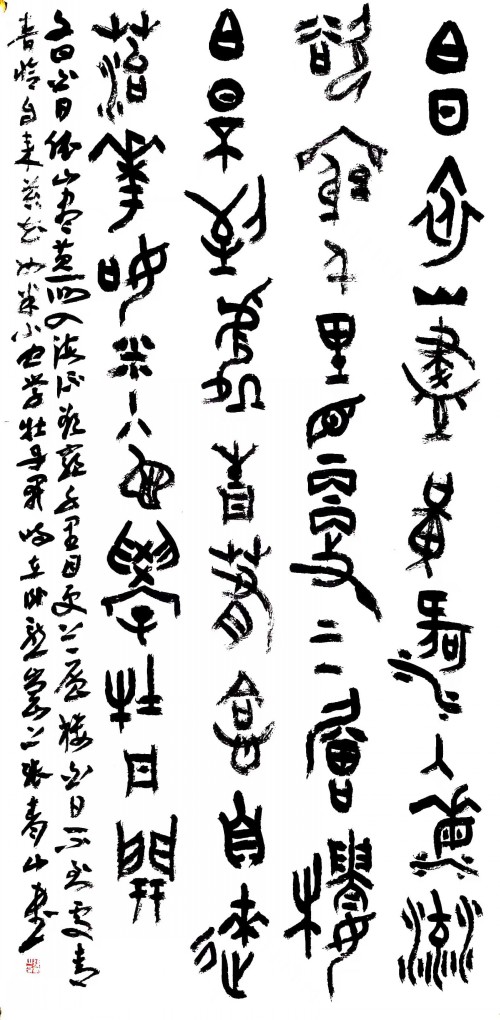 白日依山盡黃河入海流
欲窮千里目更上一層樓
白日不到處青春恰自來
苔花如米小也學牡丹開
文曰白日依山盡黃河入海流欲窮千里目更上一層樓白日不到處青
春恰自來苔花如米小也學牡丹開時在張青山書